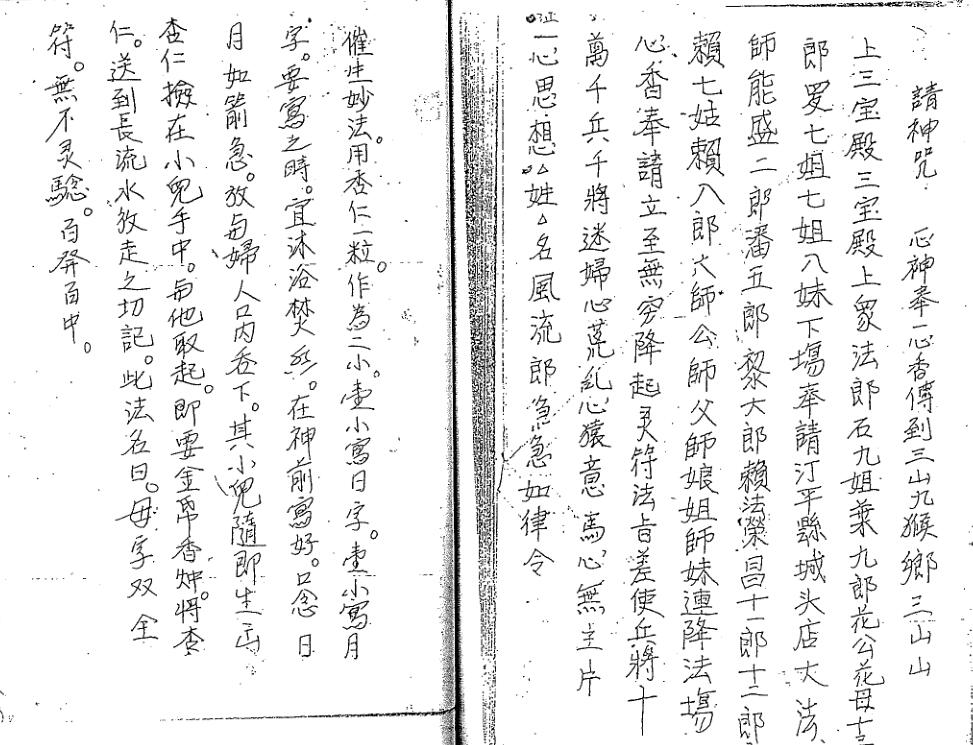 請神咒 心神奉一心香傳到三山九猴鄉三山山
上三宝殿三宝殿上众法郎石九姐葉九郎花公花母十三
郎罗七姐七姐八妹下塲奉請汀平縣城头店大法
師能盛二郎潘五郎黎大郎賴法榮昌十一郎十二郎
賴七姑賴八郎六師公師父師娘姐師妹連降法塲
心香奉請立至無穷降起灵符法旨差使兵將十
萬千兵千將迷婦心荒乱心猿意馬心無主片
一心思想△姓△名風流郎急急如律令
催生妙法。用杏仁一粒。作為二小。壹小寫日字。壹小寫月
字。要寫之時。宜沐浴焚香。在神前寫好。口念日
月如箭急。放与婦人口内吞下。其小兒隨即生亡
杏仁撿在小兒手中。与他取起。即要金帛香炉。將杏
仁。送到長流水放走之切記。此法名曰。毋字双全
符。無不灵驗。百発百中。